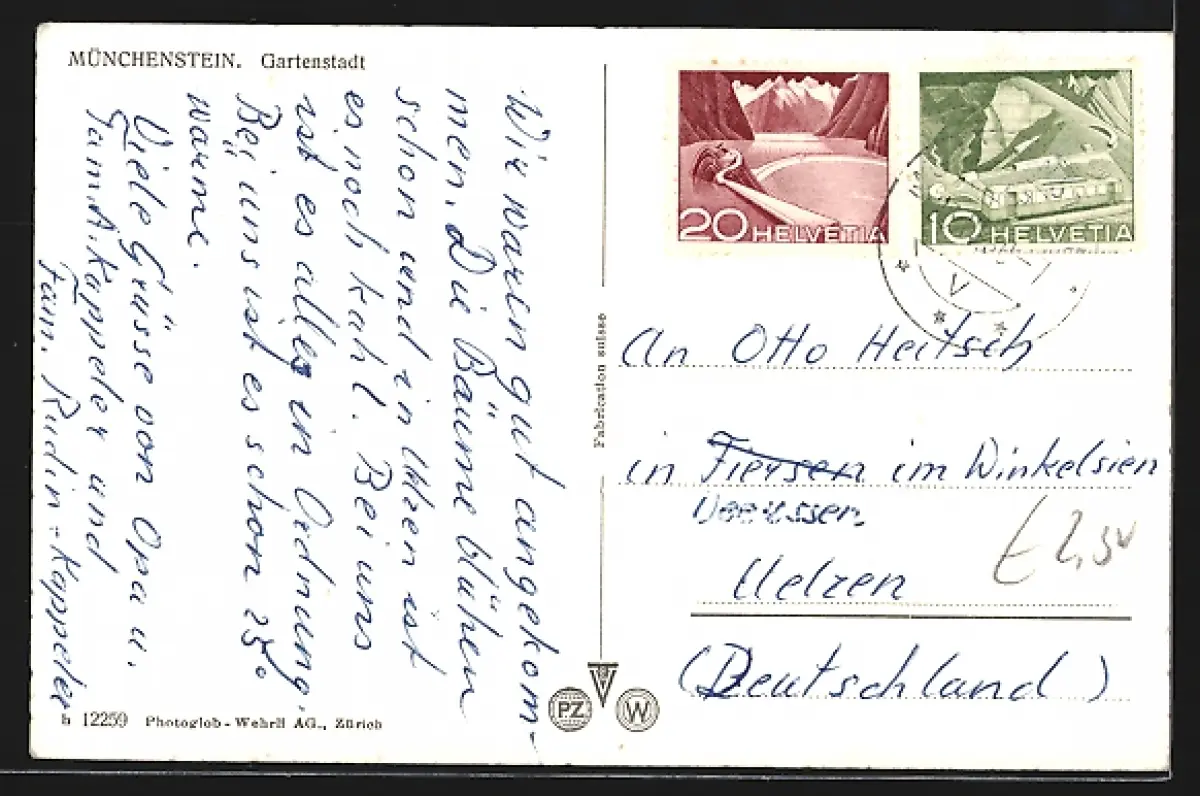 MÜNCHENSTEIN. Gartenstadt
Wir waren gut angekom-
men. Die Bäume blühen
schon und in Ulzen ist
es noch kahl. Bei uns
ist es alles in Ordnung.
Bei uns ist es schon 25°
warme.
Viele Grüsse von Opa u.
Fam. A. Kappeler und
Fam. Rudin-Kappeler
h 12259 Photoglob-Wehrli AG., Zürich
Fabrication suisse
PZ
W
20 HELVETIA
10 HELVETIA
V
An Otto Heitsch
in im Winkelsien
Uelzen
(Deutschland)